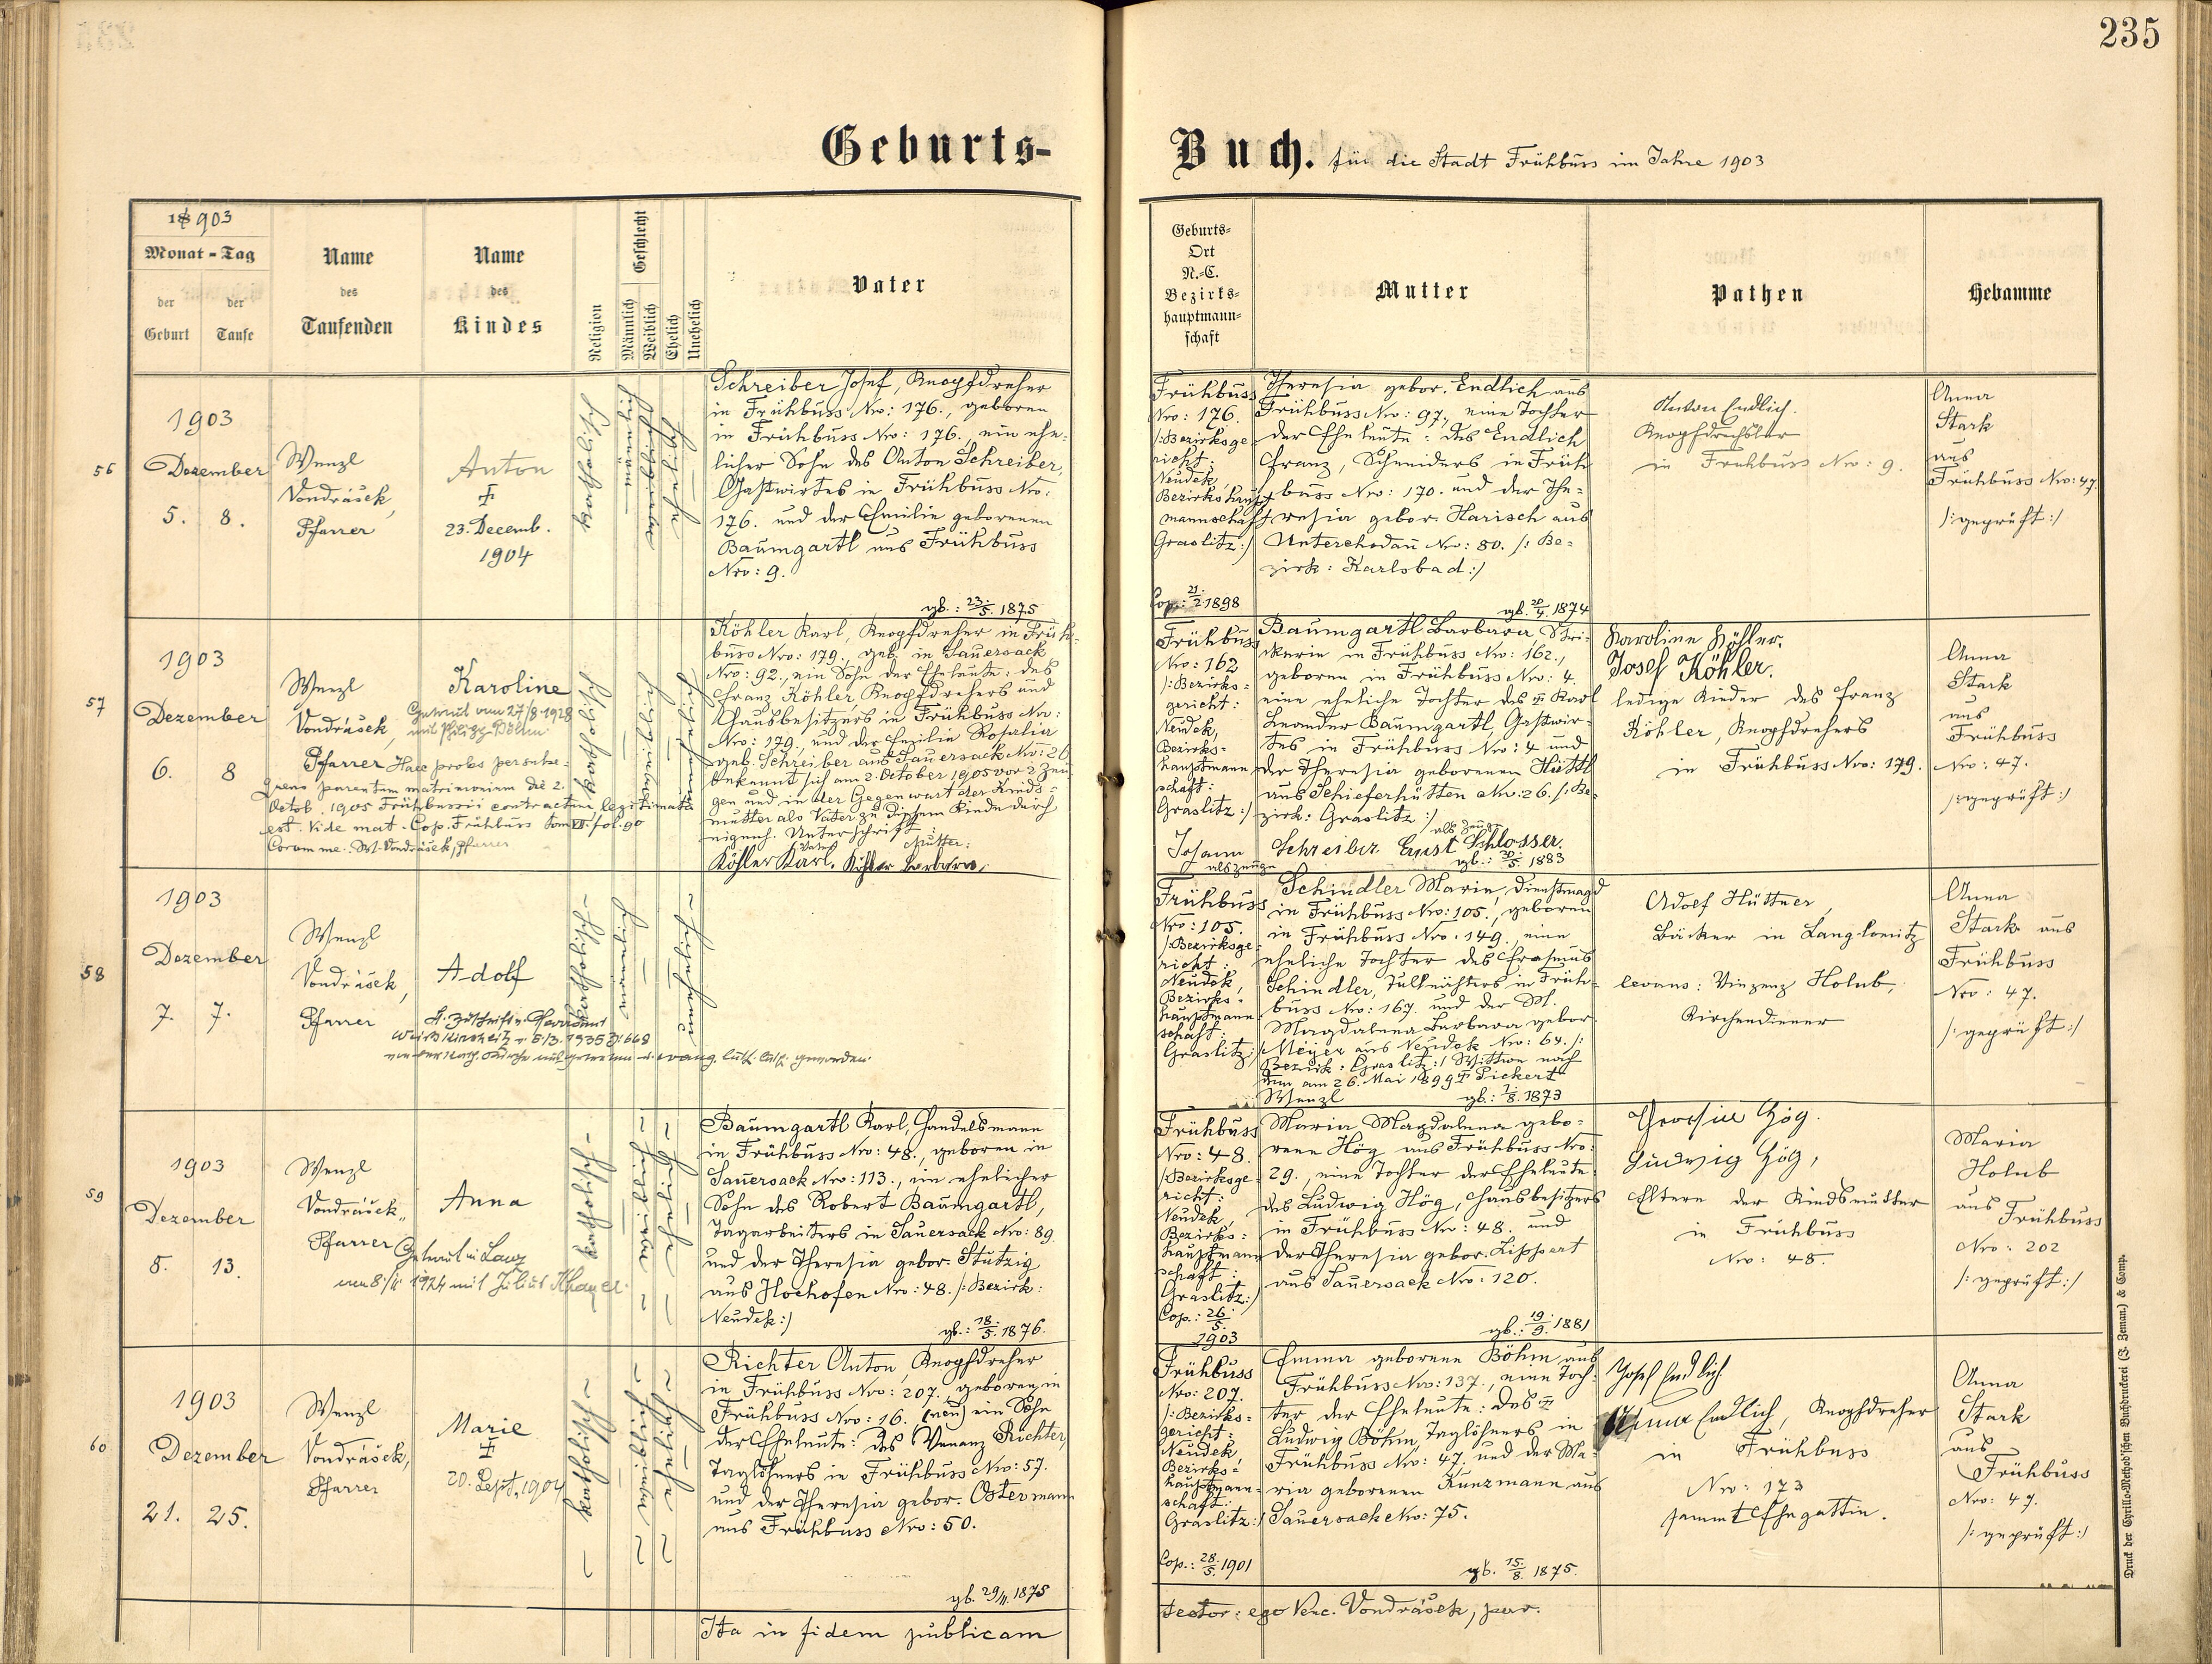 235
Geburts-
Buch. für die Stadt Frühbuss im Jahre 1903
1903
Monat - Tag
der Geburt
der Taufe
Name
des
Taufenden
Name
des
Kindes
Religion
Geschlecht
Männlich
Weiblich
Ehelich
Unehelich
Vater
Geburts-
Ort
N.-C.
Bezirks-
hauptmann-
schaft
Mutter
Pathen
Hebamme
56
1903
Dezember
5. 8.
Wenzl
Vondrášek,
Pfarrer
Anton
†
23. Decemb.
1904
katholisch
Schreiber Josef, Knopfdreher
in Frühbuss Nro: 176., geboren
in Frühbuss Nro: 176. ein ehe-
licher Sohn des Anton Schreiber,
Gastwirtes in Frühbuss Nro:
176. und der Emilie geborenen
Baumgartl aus Frühbuss
Nro: 9.
gb.: 23./5. 1875
Frühbuss
Nro: 176.
/:Bezirksge-
richt:
Neudek,
Bezirkshaupt-
mannschaft
Graslitz:/
Cop.: 21./2 1898
Theresia gebor. Endlich aus
Frühbuss Nro: 97., eine Tochter
der Eheleute: des Endlich
Franz, Schneiders in Früh-
buss Nro: 170. und der The-
resia gebor. Harisch aus
Unterchodau Nro: 80. /: Be-
zirk: Karlsbad:/
gb. 20/4. 1874
Anton Endlich.
Knopfdrechsler
in Frühbuss Nro: 9.
Anna
Stark
aus
Frühbuss Nro: 47.
/:geprüft:/
57
1903
Dezember
6. 8
Wenzl
Vondrášek,
Pfarrer
Karoline
Getraut vom 27/8 1928
mit Philipp Böhm
Haec proles per subse-
quens parentum matrimonium die 2.
Octob. 1905 Frühbussii contractum legitimata
est. Vide mat. Cop. Frühbuss tom VI. fol. 90
Coram me. W. Vondrášek, Pfarrer
katholisch
Köhler Karl, Knopfdreher in Früh-
buss Nro: 179., geb. in Sauersack
Nro: 92., ein Sohn der Eheleute: des
Franz Köhler Knopfdrehers und
Hausbesitzers in Frühbuss Nro:
Nro: 179., und der Emilie Rosalia
geb. Schreiber aus Sauersack Nro: 26
bekennt sich am 2. October 1905 vor 2 Zeu-
gen und in der Gegenwart der Kinds-
mutter als Vater zu diesem Kinde durch
eigenh. Unterschrift:
Vater Mutter:
Köhler Karl. Köhler Barbara,
Frühbuss
Nro: 162
/:Bezirks-
gericht:
Neudek,
Bezirks-
hauptmann-
schaft:
Graslitz:/
Baumgartl Barbara, Stri-
ckerin in Frühbuss Nro: 162.,
geboren in Frühbuss Nro: 4.
eine eheliche Tochter des † Karl
Leander Baumgartl, Gastwir-
tes in Frühbuss Nro: 4 und
der Theresia geborenen Hüttl
aus Schieferhütten Nro: 26. /: Be-
zirk: Graslitz:/
als Zeuge
Johann Schreiber Ernst Schlosser.
als Zeuge
gb.: 20./5. 1883
Karoline Köhler.
Josef Köhler.
ledige Kinder des Franz
Köhler, Knopfdrehers
in Frühbuss Nro: 179.
Anna
Stark
aus
Frühbuss
Nro: 47.
/:geprüft:/
58
1903
Dezember
7. 7.
Wenzl
Vondrášek,
Pfarrer
Adolf
katholisch
Frühbuss
Nro: 105.
/:Bezirksge-
richt:
Neudek,
Bezirks-
hauptmann-
schaft:
Graslitz:/
Schindler Marie, Dienstmagd
in Frühbuss Nro: 105., geboren
in Frühbuss Nro. 149., eine
eheliche Tochter des Erasmus
Schindler, in Früh-
buss Nro: 167. und der M.
Magdalena Barbara gebor.
Meyer aus Neudek Nro: 64. /:
Bezirk: Graslitz:/ Wittwe nach
dem am 26. Mai 1899 † Pickert
Wenzl
gb.: 7./8. 1873
Adolf Hüttner,
Bäcker in Lang-
levans: Vinzenz Holub,
Kirchendiener
Anna
Stark aus
Frühbuss
Nro: 47.
/:geprüft:/
59
1903
Dezember
8. 13.
Wenzl
Vondrášek,
Pfarrer
Anna
katholisch
Baumgartl Karl, Handelsmann
in Frühbuss Nro: 48., geboren in
Sauersack Nro: 113., ein ehelicher
Sohn des Robert Baumgartl,
Tagarbeiters in Sauersack Nro: 89.
und der Theresia gebor. Stutzig
aus Hochofen Nro: 48. /: Bezirk:
Neudek:/
gb.: 18./5. 1876.
Frühbuss
Nro: 48.
/:Bezirksge-
richt:
Neudek,
Bezirks-
hauptmann-
schaft:
Graslitz:/
Cop.: 26./5.
1903
Maria Magdalena gebo-
rene Hög aus Frühbuss Nro:
29., eine Tochter der Eheleute:
des Ludwig Hög, Hausbesitzers
in Frühbuss Nro: 48. und
der Theresia gebor. Lippert
aus Sauersack Nro: 120.
gb.: 19./9. 1881
Theresia Hög.
Ludwig Hög,
Eltern der Kindsmutter
in Frühbuss
Nro: 48.
Maria
Holub
aus Frühbuss
Nro: 202
/:geprüft:/
60
1903
Dezember
21. 25.
Wenzl
Vondrášek,
Pfarrer
Marie
†
20. Sept. 1904
katholisch
Richter Anton, Knopfdreher
in Frühbuss Nro: 207., geboren in
Frühbuss Nro: 16. (neu) ein Sohn
der Eheleute: des Venanz Richter,
Taglöhners in Frühbuss Nro: 57.
und der Theresia gebor. Ostermann
aus Frühbuss Nro: 50.
gb. 29/11. 1875
Frühbuss
Nro: 207.
/:Bezirks-
gericht:
Neudek,
Bezirks-
hauptmann-
schaft:
Graslitz:/
Cop.: 28./5. 1901
Emma geborene Böhm aus
Frühbuss Nro: 137., eine Toch-
ter der Eheleute: des †
Ludwig Böhm, Taglöhners in
Frühbuss Nro: 47. und der Ma-
ria geborenen Kunzmann aus
Sauersack Nro: 75.
gb. 15./8. 1875.
Josef Endlich
Endlich, Knopfdreher
in Frühbuss
Nro: 173
sammt Ehegattin.
Anna
Stark
aus
Frühbuss
Nro: 47.
/:geprüft:/
Ita in fidem publicam
testor: ego Venc. Vondrášek, par.
Druck der Cyrillo-Method'schen Buchdruckerei (J. Zeman) & Comp.